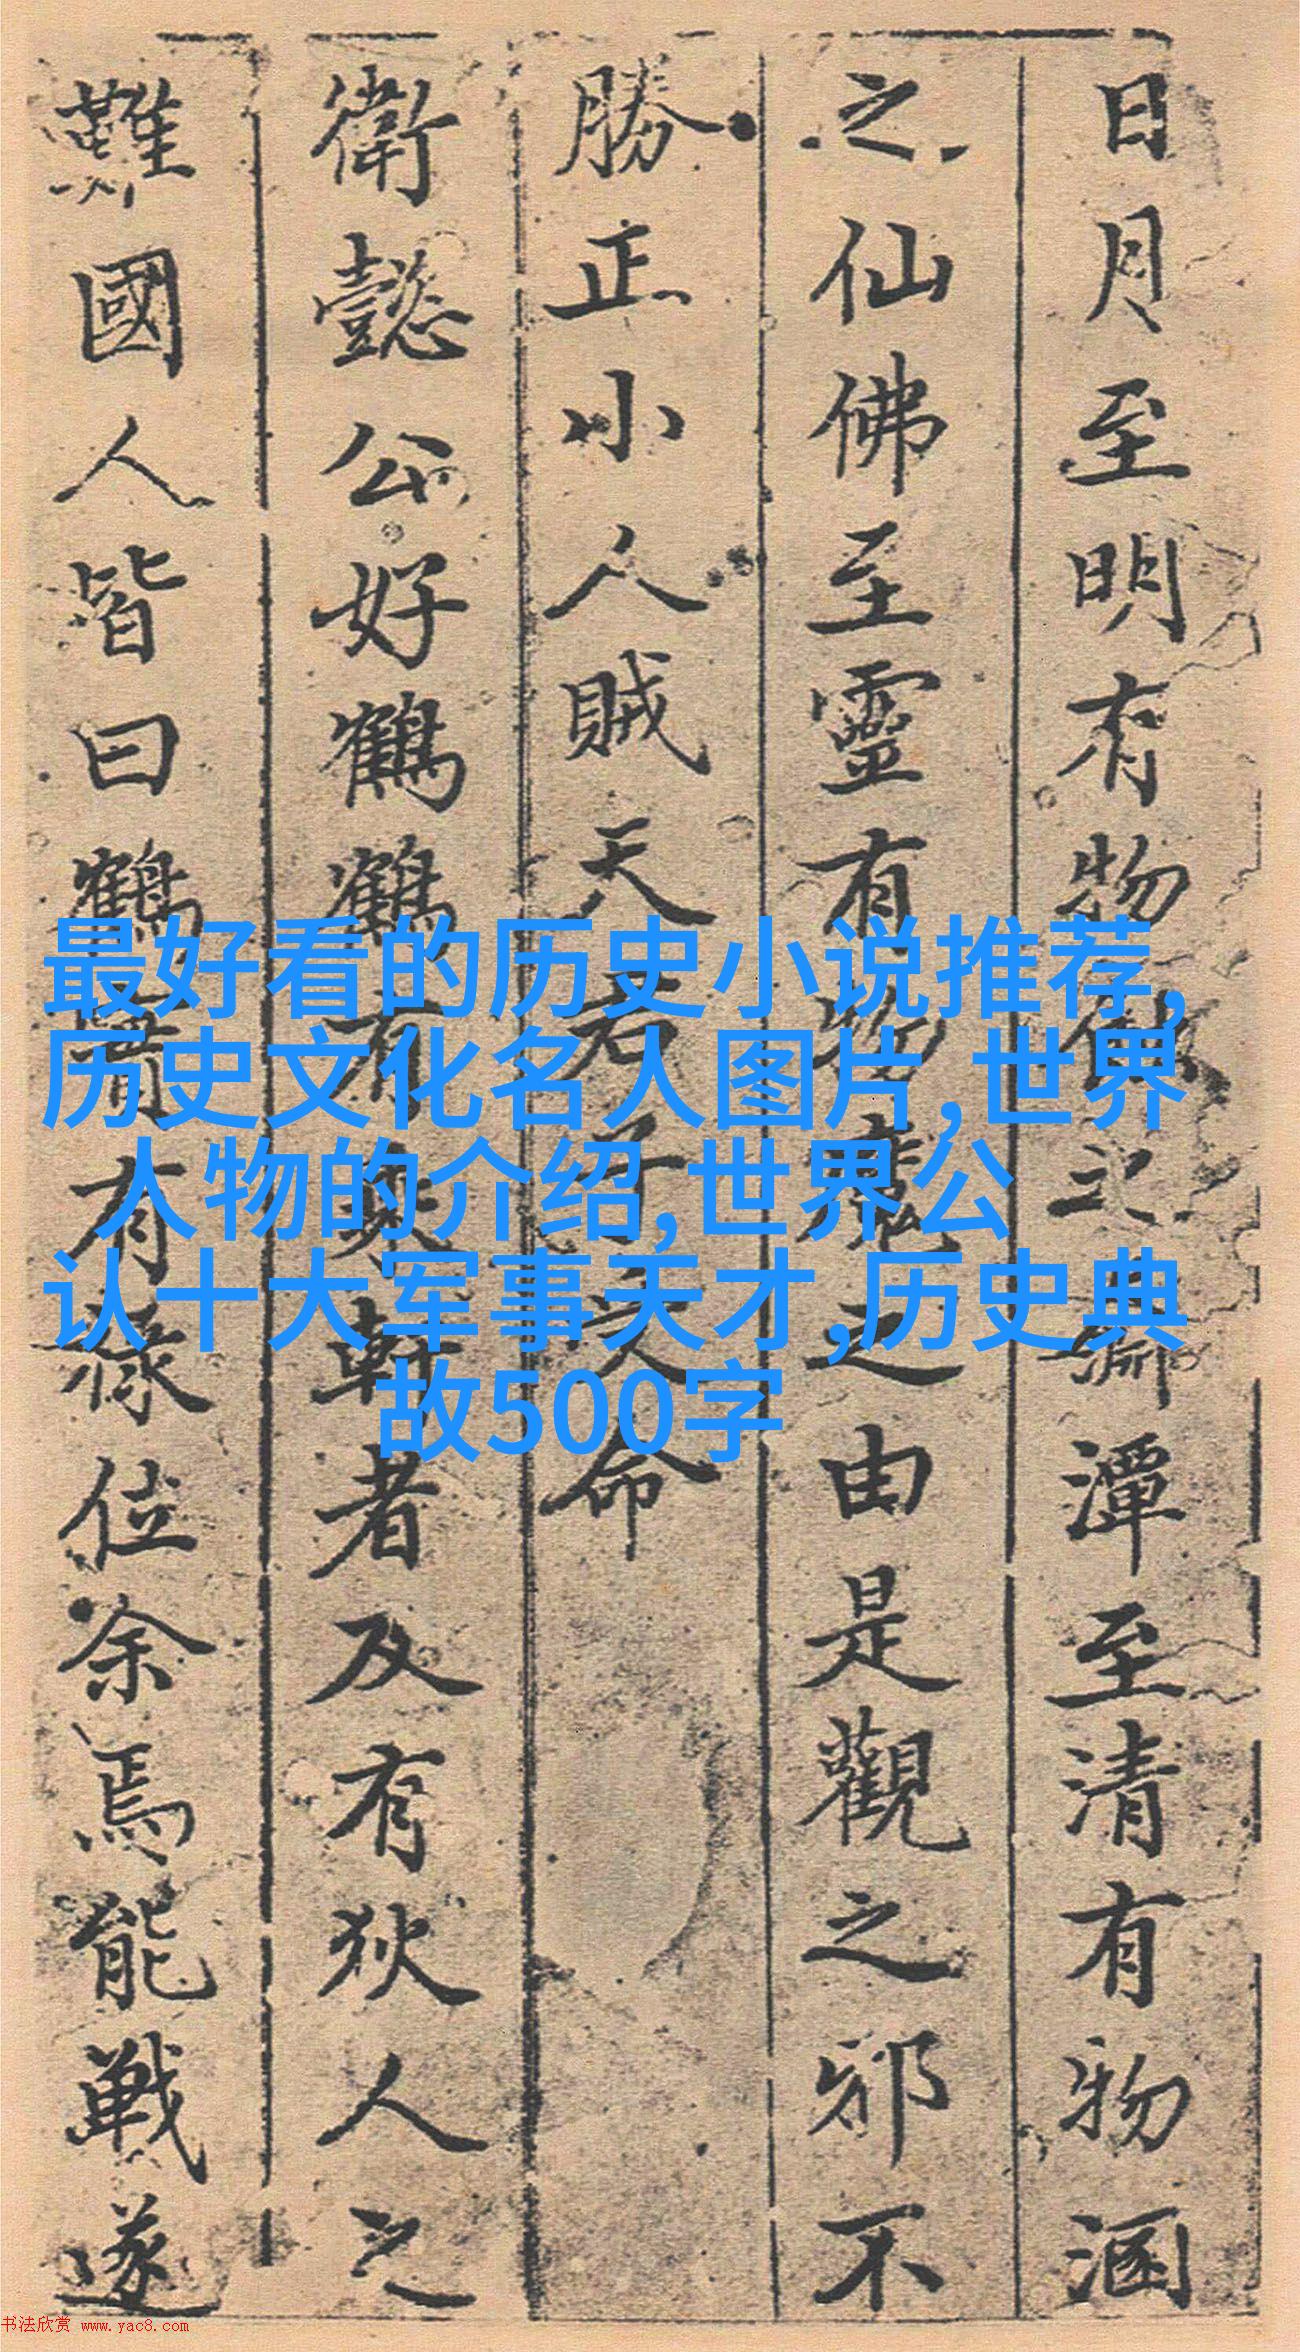 日月至明有物蝕之淵潭至清有物溷
之仙佛至靈有物魔之由是觀之邪不
勝正小人賊天君子命
衛懿公好鶴鶴有乘軒者及有狄人之
難國人皆曰鶴實有祿位余焉能戰遂
最好看的历史小说推荐,
历史文化名人图片,世界
人物的介绍,世界公
认十大军事天才,历史典
故500字
书法欣赏 www.yac8.com